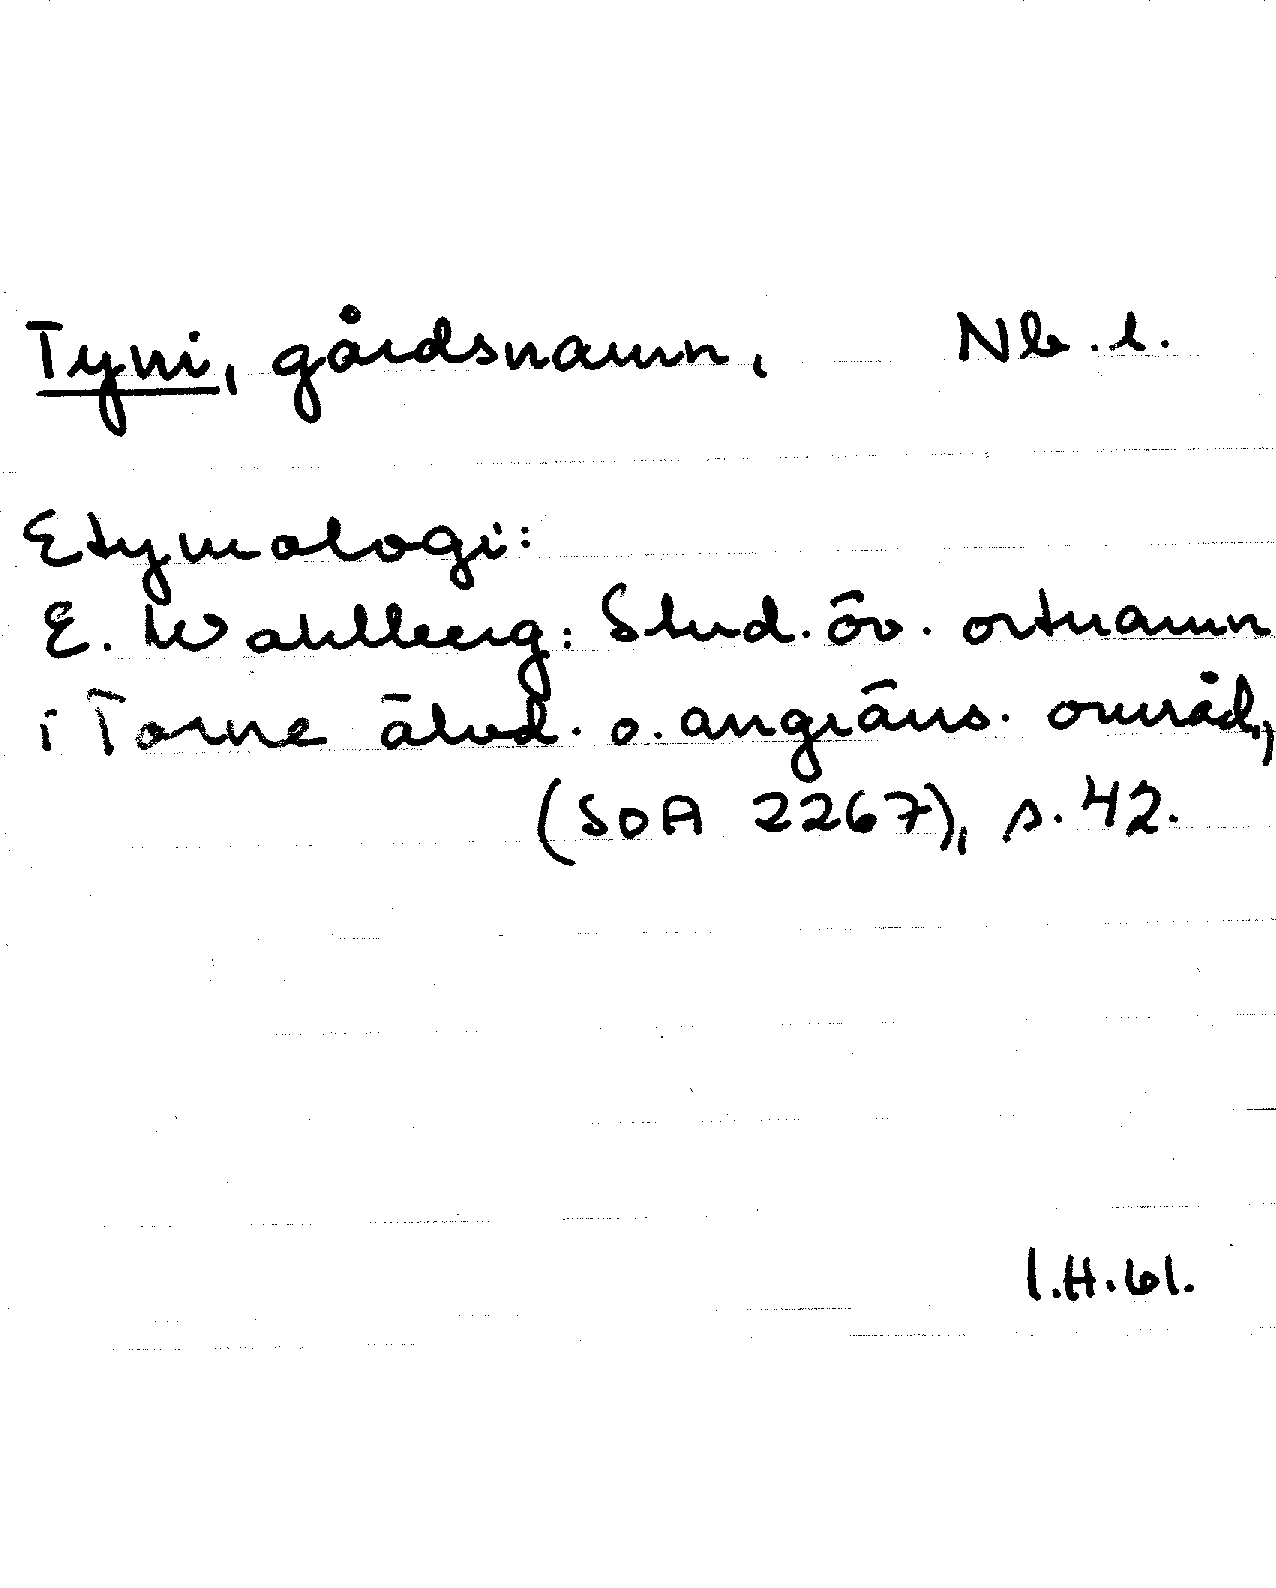 Tyni, gårdsnamn, Nb. l.
Etymologi:
E. Wahlberg: Stud. öv. ortnamn
i Torne älvd. o. angräns. områd.,
(SOA 2267), s. 42.
I.H.61.